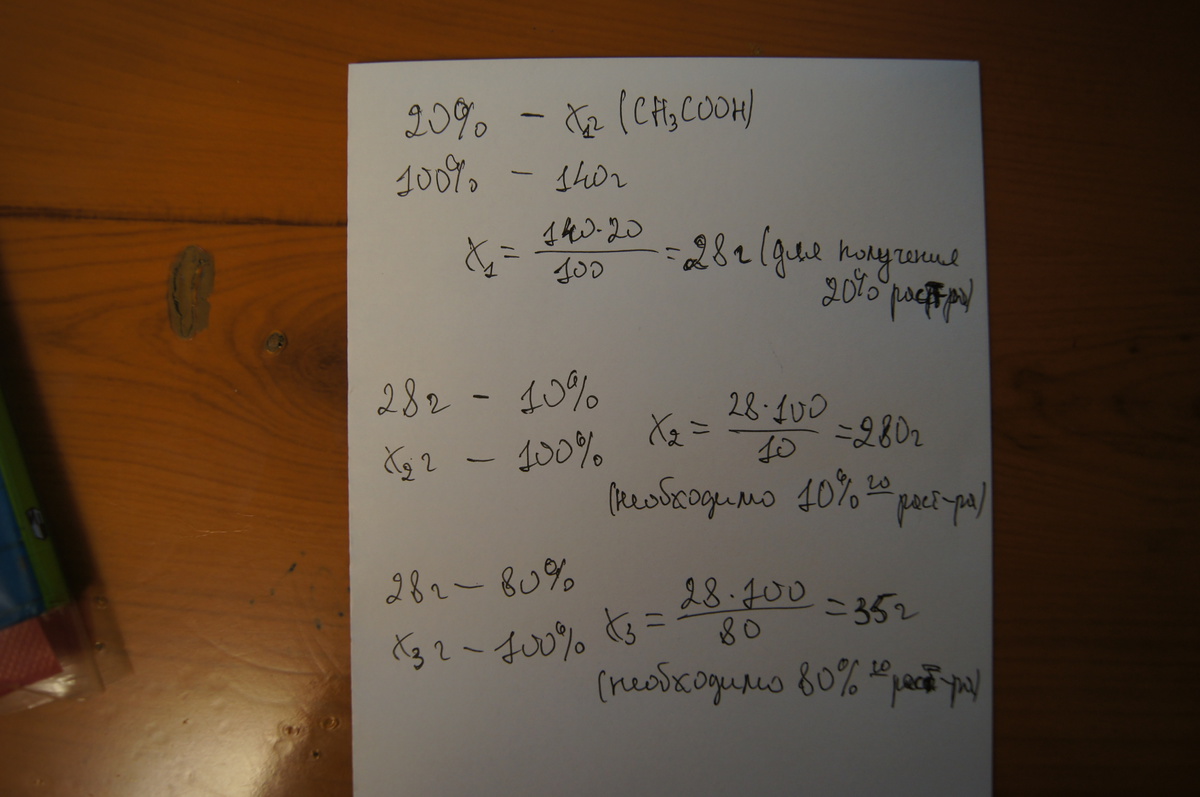 20% – x₁ г (CH₃COOH)
100% – 140г
x₁ = 140·20 / 100 = 28г (для получения
20% раст-ра)
28г – 10%
x₂ г – 100%
x₂ = 28·100 / 10 = 280г
(необходимо 10% го раст-ра)
28г – 80%
x₃ г – 100%
x₃ = 28·100 / 80 = 35г
(необходимо 80% го раст-ра)